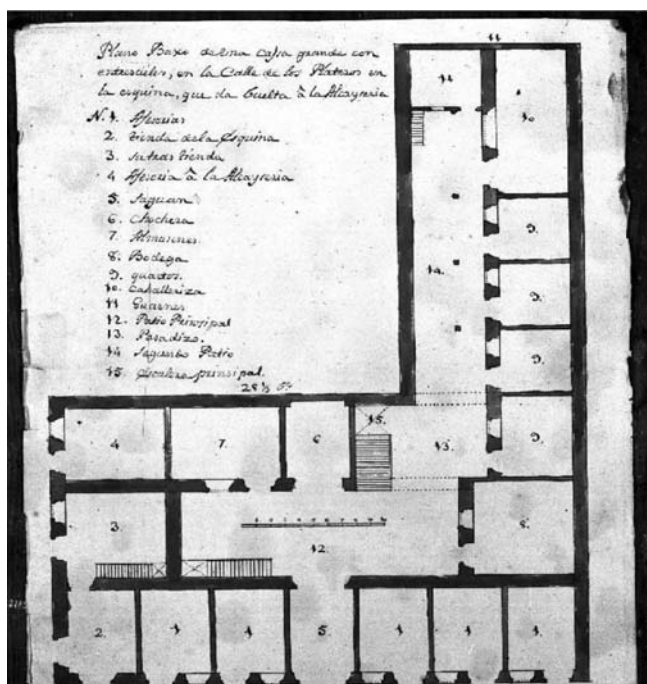 Plano Baxo de una Cassa grande con
entresuelos, en la Calle de los Plateros en
la esquina, que da buelta à la Alcayseria
N. 1. Assesorias
2. tienda de la Esquina.
3. tras tienda
4 à la Alcayseria
5. Saguan
6. Chochera
7. Almasenes.
8. Bodega
9. quartos.
10. Caballeriza
11 Guarnes
12. Patio Prinsipal
13. Pasadizo.
14 Segundo Patio
15. Escalera prinsipal.
28 ½
11
11
10
9.
9.
14.
9.
9.
15.
13.
4
7.
6
8.
3.
12.
2.
1
1
5
1
1
1.